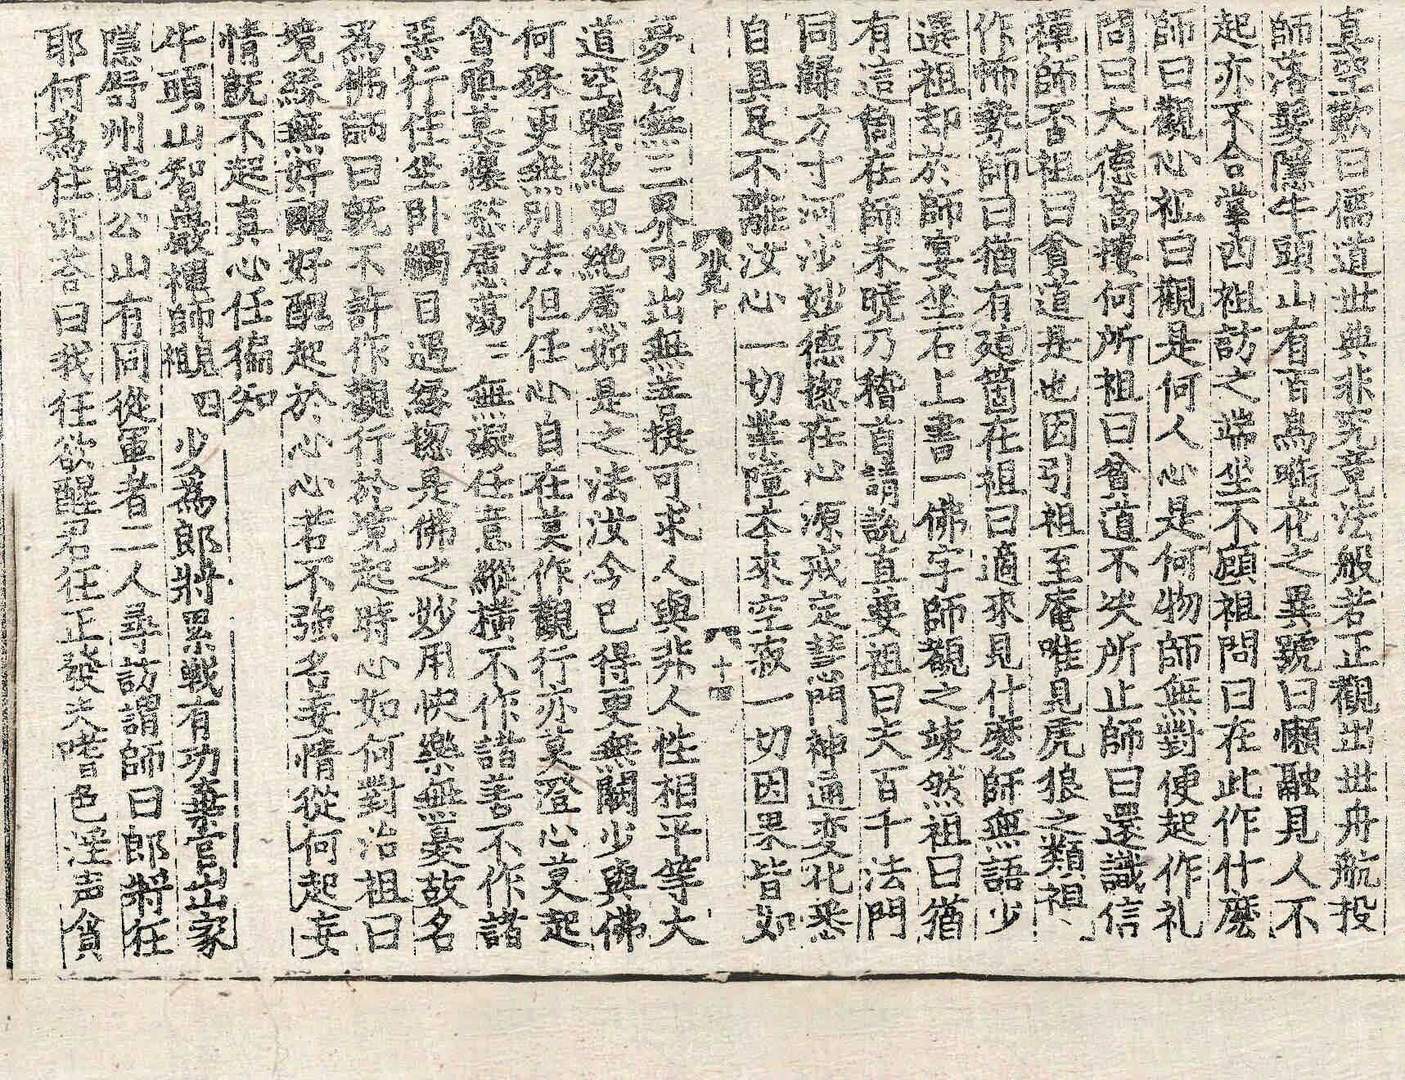 真空歎曰儒道世典非究竟法般若正觀出世舟航投
師落髮隱牛頭山有百鳥啣花之異號曰懶融見人不
起亦不合掌四祖訪之端坐不顧祖問曰在此作什麽
師曰觀心祖曰觀是何人心是何物師無對便起作礼
問曰大德高棲何所祖曰貧道不决所止師曰還識信
禪師否祖曰貧道是也因引祖至庵唯見虎狼之類祖
作怖勢師曰猶有這箇在祖曰適來見什麽師無語少
選祖却於師宴坐石上書一佛字師覩之竦然祖曰猶
有這箇在師未曉乃稽首請說直要祖曰夫百千法門
同歸方寸河沙妙德揔在心源戒定慧門神通变化悉
自具足不離汝心一切業障本來空寂一切因果皆如
十四
夢幻無三界可出無菩提可求人與非人性相平等大
道空曠絶思絶慮如是之法汝今已得更無闕少與佛
何殊更無別法但任心自在莫作觀行亦莫澄心莫起
貪嗔莫懷愁慮蕩〻無礙任意縱橫不作諸善不作諸
惡行住坐卧觸目遇緣揔是佛之妙用快樂無憂故名
爲佛師曰旣不許作觀行於境起時心如何對治祖曰
境緣無好醜好醜起於心心若不強名妄情從何起妄
情旣不起真心任徧知
牛頭山智巖禪師 嗣四 少爲郎將累戰有功棄官出家
隱舒州皖公山有同從軍者二人尋訪謂師曰郎將狂
耶何爲住此荅曰我狂欲醒君狂正發夫嗜色淫声貪